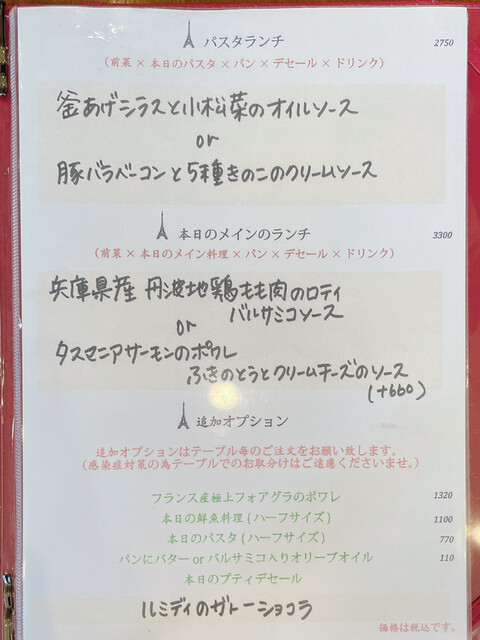 パスタランチ 2750
(前菜×本日のパスタ×パン×デセール×ドリンク)
釜あげシラスと小松菜のオイルソース
or
豚バラベーコンと5種きのこのクリームソース
本日のメインのランチ 3300
(前菜×本日のメイン料理×パン×デセール×ドリンク)
兵庫県産 丹波地鶏もも肉のロティ
バルサミコソース
or
タスマニアサーモンのポワレ
ふきのとうとクリームチーズのソース
(+660)
追加オプション
追加オプションはテーブル毎のご注文をお願い致します。
(感染症対策の為テーブルでのお取分けはご遠慮くださいませ。)
フランス産極上フォアグラのポワレ 1320
本日の鮮魚料理(ハーフサイズ) 1100
本日のパスタ(ハーフサイズ) 770
パンにバターorバルサミコ入りオリーブオイル 110
本日のプティデセール
ルミディのガトーショコラ
価格は税込です。